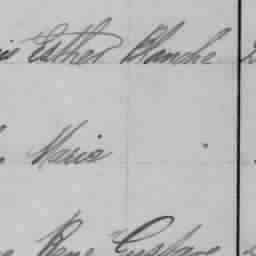 Esther Blanche
Marie
René Gustave